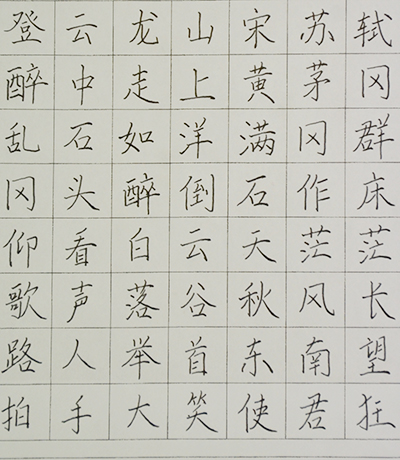 登云龙山宋苏轼
醉中走上黄茅冈
乱石如洋满冈群
冈头醉倒石作床
仰看白云天茫茫
歌声落谷秋风长
路人举首东南望
拍手大笑使君狂